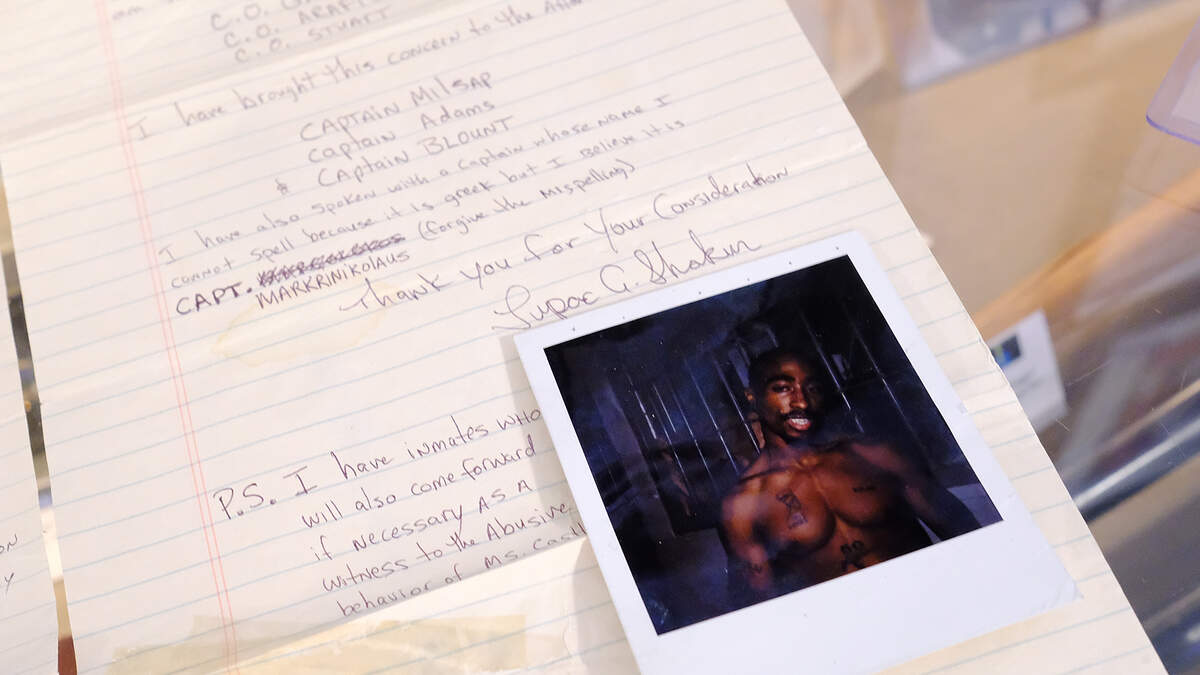 C.O.
C.O. ARAF
C.O. STUATT
I have brought this concern to the
CAPTAIN MILSAP
CAPTAIN Adams
& CAPTAIN BLOUNT
I have also spoken with a captain whose name I
cannot spell because it is greek but I believe it is
CAPT. (forgive the mispelling)
MARKRINIKOLAUS
Thank You for Your Consideration
Tupac A. Shakur
P.S. I have inmates who
will also come forward
if necessary AS A
witness to the Abusive
behavior of Ms. Castil
ON
Y